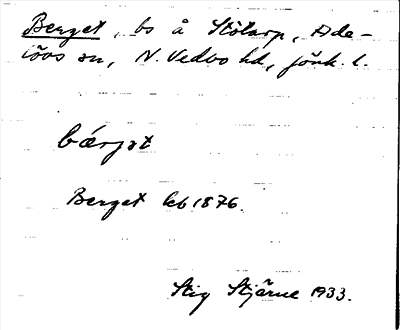 Berget, bs å Stötarp, Ade-
lövs sn, N. Vedbo hd, Jönk. l.
bærjət
Berget kb 1876.
Stig Stjärne 1933.